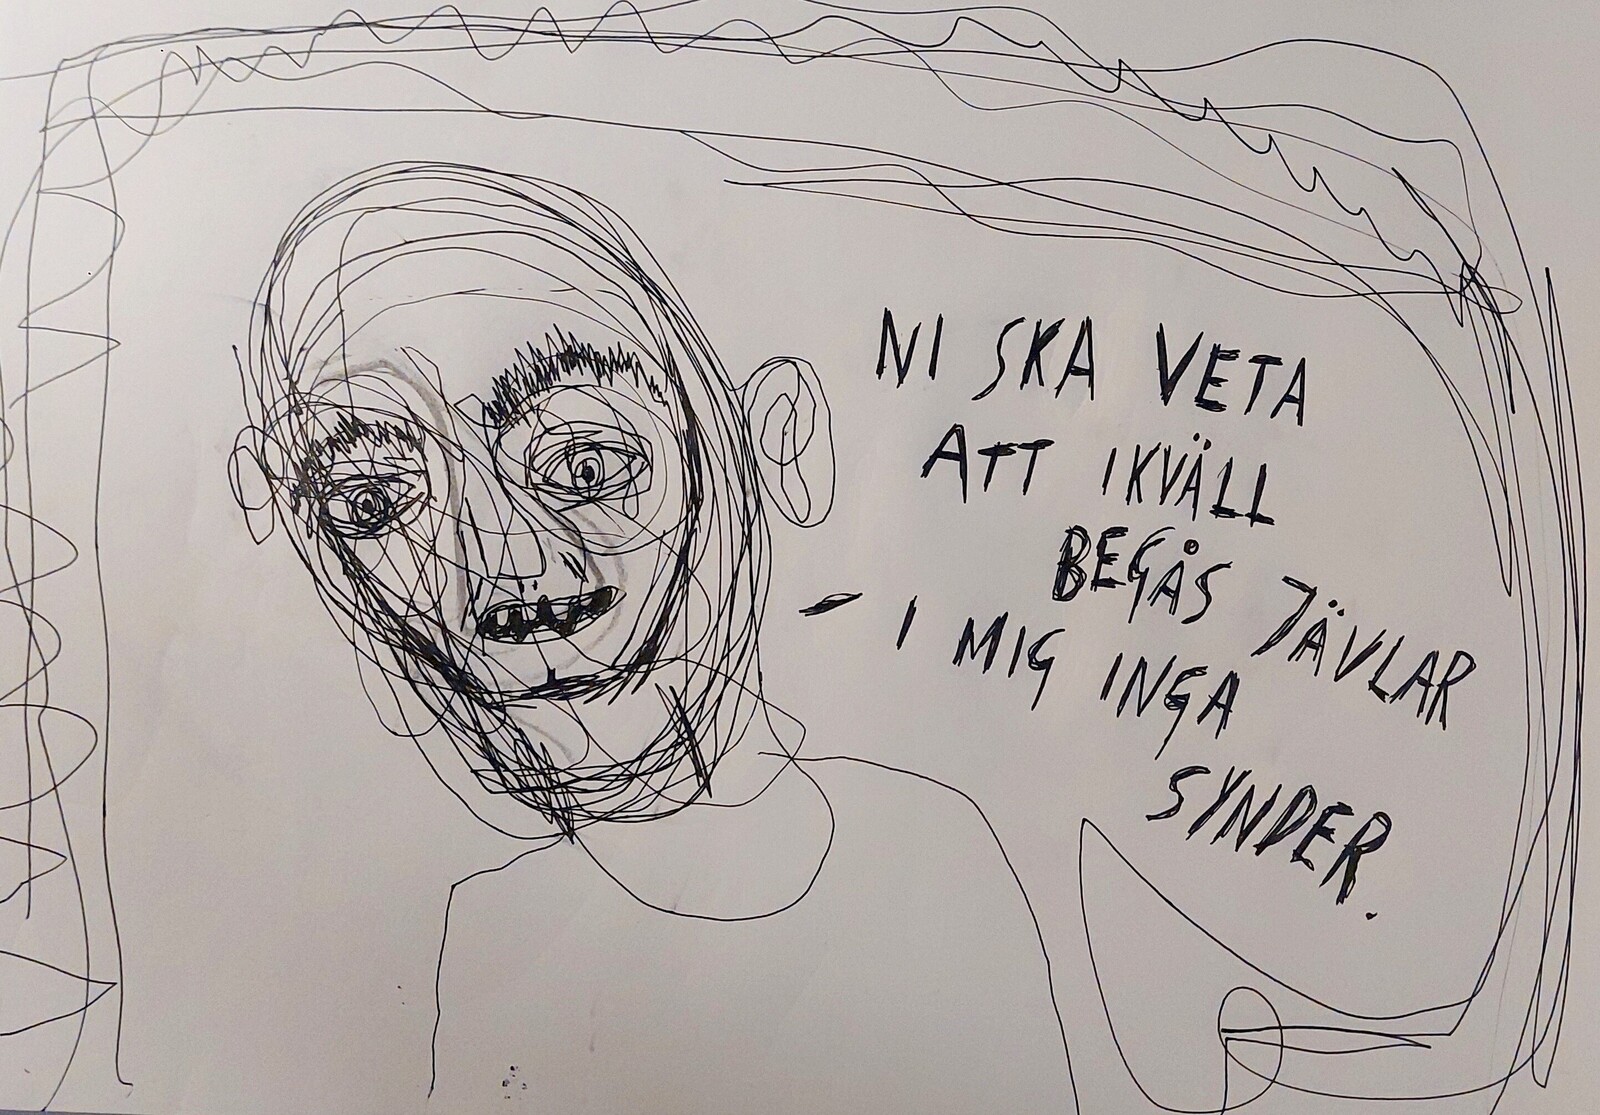 NI SKA VETA
ATT IKVÄLL
BEGÅS JÄVLAR
- I MIG INGA
SYNDER.